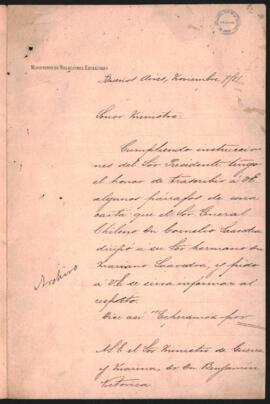 MINISTERIO DE RELACIONES EXTERIORES
Buenos Aires, Noviembre 7/81
Señor Ministro:
Cumpliendo instruccio
nes del Sor Presidente tengo
el honor de trascribir á V.E.
algunos párrafos de una
carta que el Sor General
Chileno Dn Cornelio Saavedra
dirijió a su Sor hermano Dn
Mariano Saavedra, y pido
á V.E. se sirva informar al
respecto.
Dice así: "Esperamos por
Archivo
A S.E. el Sor Ministro de Guerra
y Marina, Dr Dn Benjamin
Victorica